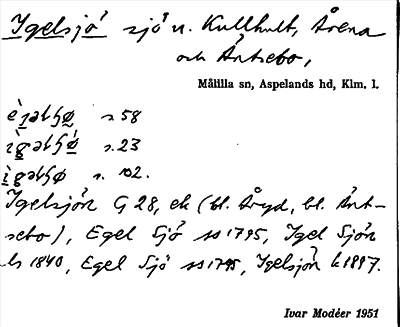 Igelsjö sjö n. Kullhult, Årena
och Äntsebo,
Målilla sn, Aspelands hd, Klm. l.
s. 58
s. 23
s. 102.
Igelsjön G 28, ek (bl. Åryd, bl. Änt-
sebo), Egel Sjö ss 1795, Igel Sjön
ls 1840, Egel Sjö ss 1795, Igelsjön k 1897.
Ivar Modéer 1951